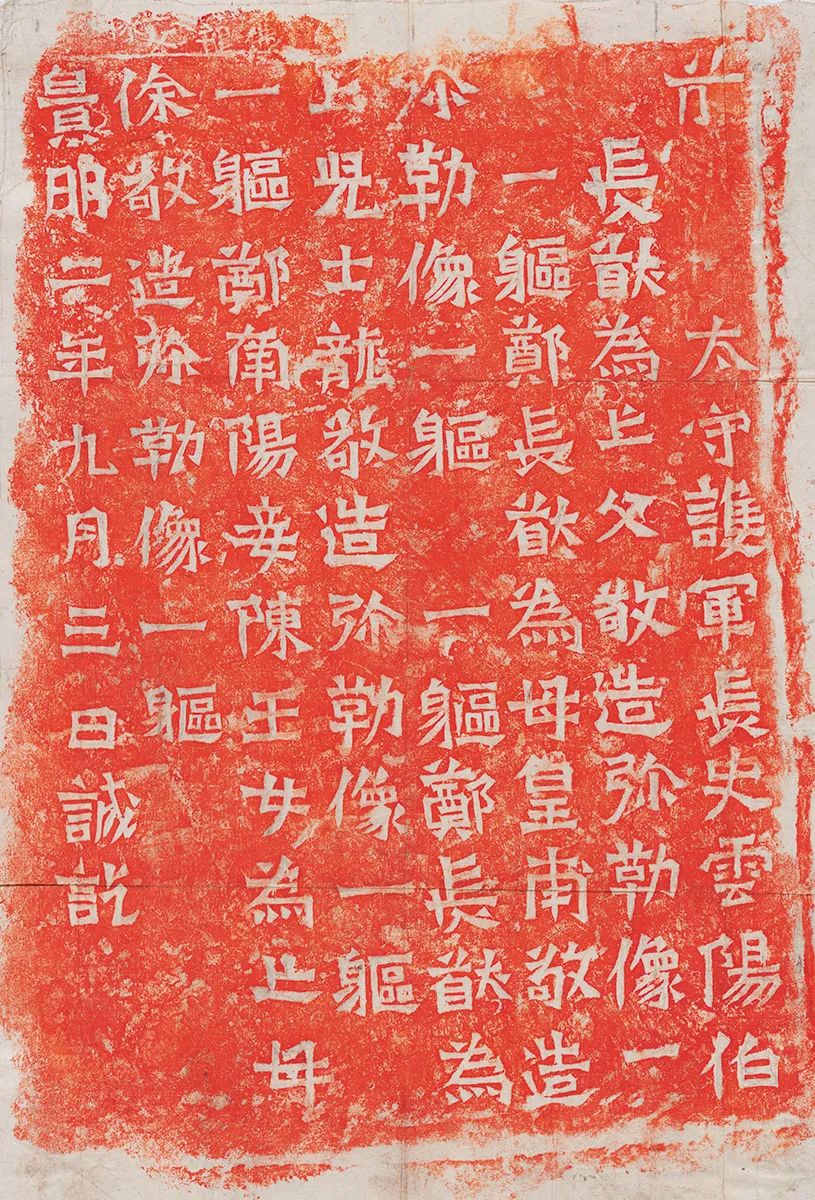 前太守護軍長史雲陽伯
長猷為亡父敬造弥勒像一
一軀鄭長猷為母皇甫敬造
弥勒像一軀一軀鄭長猷為
亡兒士龍敬造弥勒像一軀
一軀鄭南陽妾陳王女為亡母
徐敬造弥勒像一軀
景明二年九月三日誡訖